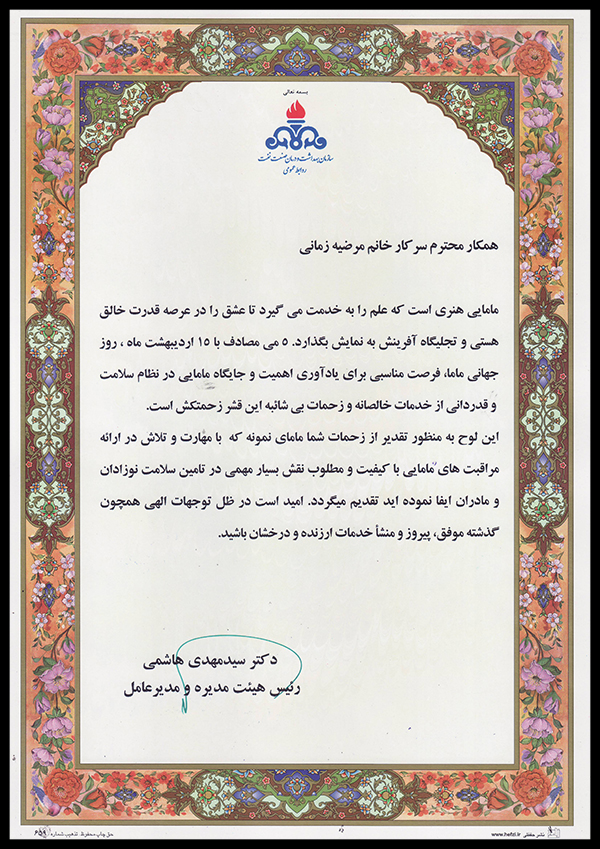 بسمه تعالی
سازمان بهداشت و درمان صنعت نفت
روابط عمومی
همکار محترم سرکار خانم مرضیه زمانی
مامایی هنری است که علم را به خدمت می گیرد تا عشق را در عرصه قدرت خالق
هستی و تجلیگاه آفرینش به نمایش بگذارد. ۵ می مصادف با ۱۵ اردیبهشت ماه ، روز
جهانی ماما، فرصت مناسبی برای یادآوری اهمیت و جایگاه مامایی در نظام سلامت
و قدردانی از خدمات خالصانه و زحمات بی شائبه این قشر زحمتکش است.
این لوح به منظور تقدیر از زحمات شما مامای نمونه که با مهارت و تلاش در ارائه
مراقبت های مامایی با کیفیت و مطلوب نقش بسیار مهمی در تامین سلامت نوزادان
و مادران ایفا نموده اید تقدیم میگردد. امید است در ظل توجهات الهی همچون
گذشته موفق، پیروز و منشأ خدمات ارزنده و درخشان باشید.
دکتر سیدمهدی هاشمی
رئیس هیئت مدیره و مدیرعامل
نشر حفظی www.hefzi.ir
حق چاپ محفوظ. تذهیب شماره ۶۵۹